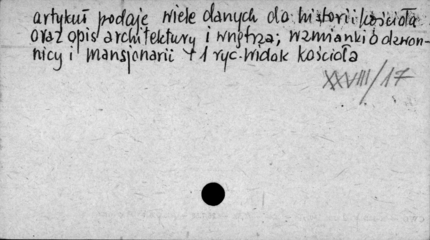 artykuł podaje wiele danych do historii kościoła
oraz opis architektury i wnętrza; wzmianki o dzwon-
nicy i mansjonarii + 1 ryc. widok kościoła
XXVIII/17